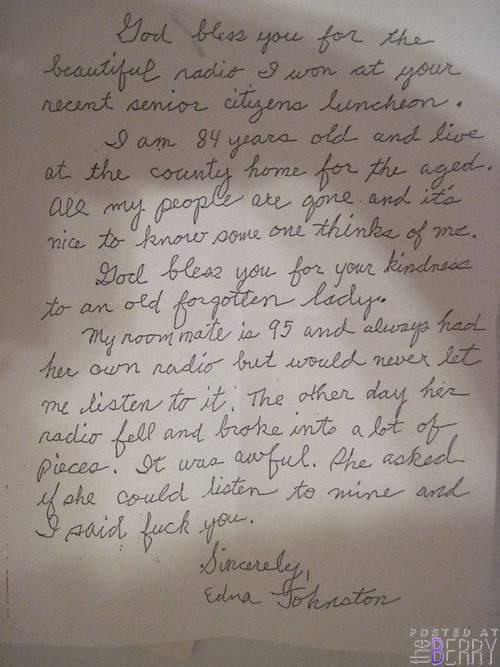 God bless you for the
beautiful radio I won at your
recent senior citizens luncheon.
I am 84 years old and live
at the county home for the aged.
All my people are gone and it's
nice to know some one thinks of me.
God bless you for your kindness
to an old forgotten lady.
My roommate is 95 and always had
her own radio but would never let
me listen to it. The other day her
radio fell and broke into a lot of
pieces. It was awful. She asked
if she could listen to mine and
I said fuck you.
Sincerely,
Edna Johnston
POSTED AT
theBERRY